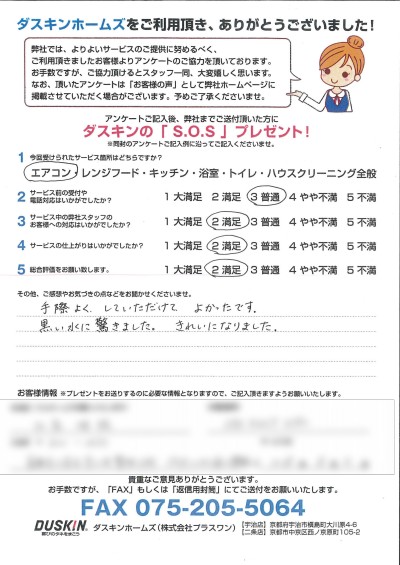 ダスキンホームズをご利用頂き、ありがとうございました!
弊社では、よりよいサービスのご提供に努めるべく、
ご利用頂きましたお客様よりアンケートのご協力を頂いております。
お手数ですが、ご協力頂けるとスタッフ一同、大変嬉しく思います。
なお、頂いたアンケートは「お客様の声」として弊社ホームページに
掲載させていただく場合がございます。予めご了承くださいませ。
アンケートご記入後、弊社までご送付頂いた方に
ダスキンの「S.O.S」プレゼント!
※同封のアンケートご記入例に沿ってご記入くださいませ。
1 今回受けられたサービス箇所はどちらですか?
エアコン・レンジフード・キッチン・浴室・トイレ・ハウスクリーニング全般
2 サービス前の受付や
電話対応はいかがでしたか? 1 大満足 2 満足 3 普通 4 やや不満 5 不満
3 サービス中の弊社スタッフの
お客様への対応はいかがでしたか? 1 大満足 2 満足 3 普通 4 やや不満 5 不満
4 サービスの仕上がりはいかがでしたか? 1 大満足 2 満足 3 普通 4 やや不満 5 不満
5 総合評価をお願い致します。 1 大満足 2 満足 3 普通 4 やや不満 5 不満
その他、ご感想やお気づきの点などをお聞かせくださいませ。
手際よく していただけて よかったです。
黒い水に驚きました。 きれいになりました。
お客様情報 ※プレゼントをお送りするのに必要な情報となりますので、ご記入頂きますようお願いいたします。
貴重なご意見ありがとうございます。
お手数ですが、「FAX」もしくは「返信用封筒」にてご送付をお願いいたします。
FAX 075-205-5064
DUSKIN 喜びのタネをまこう ダスキンホームズ(株式会社プラスワン) 【宇治店】京都府宇治市槇島町大川原4-6
【二条店】京都市中京区西ノ京原町105-2